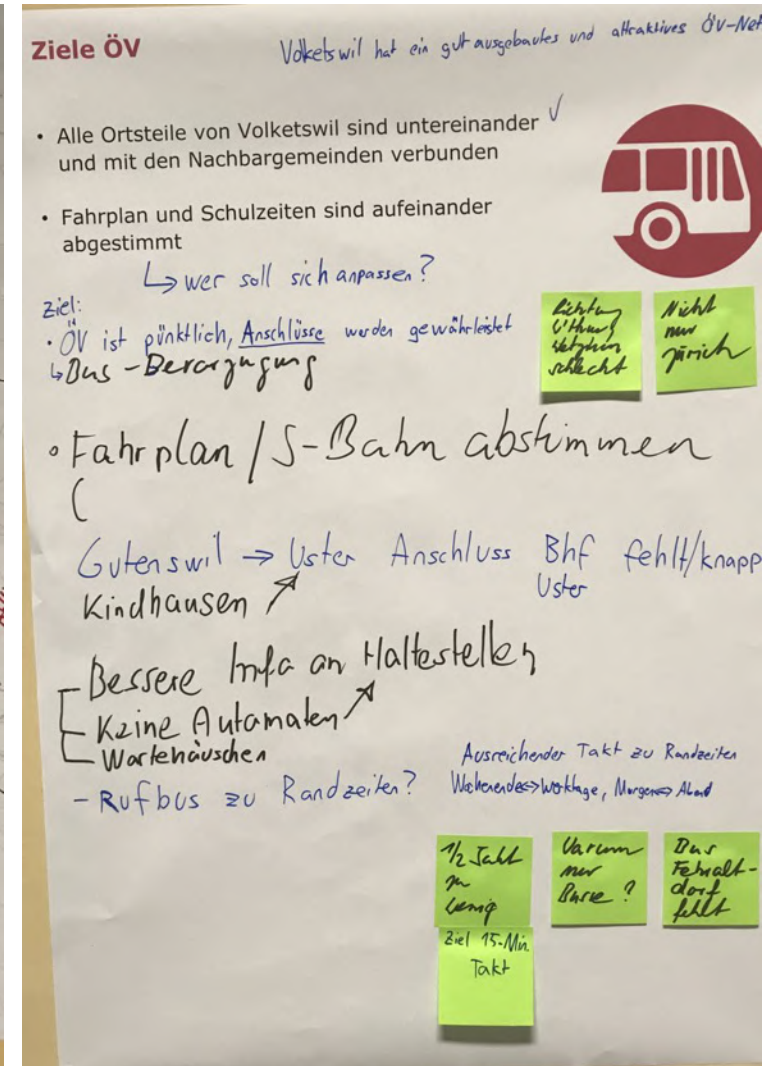 Ziele ÖV
Volketswil hat ein gut ausgebautes und attraktives ÖV-Net
• Alle Ortsteile von Volketswil sind untereinander ✓
und mit den Nachbargemeinden verbunden
• Fahrplan und Schulzeiten sind aufeinander
abgestimmt
↳ wer soll sich anpassen?
Ziel:
• ÖV ist pünktlich, Anschlüsse werden gewährleistet
↳ Bus-Bevorzugung
Richtung
schlecht
Nicht
nur
Zürich
• Fahrplan / S-Bahn abstimmen
(
Gutenswil → Uster Anschluss Bhf fehlt/knapp
Uster
Kindhausen ↗
- Bessere Info an Haltestellen
- Keine Automaten ↗
- Wartehäuschen
- Rufbus zu Randzeiten?
Ausreichender Takt zu Randzeiten
Wochenende ↔ Werktage, Morgen ↔ Abend
1/2 Takt
zu
wenig
Ziel 15-Min
Takt
Warum
nur
Busse?
Bus
Fehralt-
dorf
fehlt